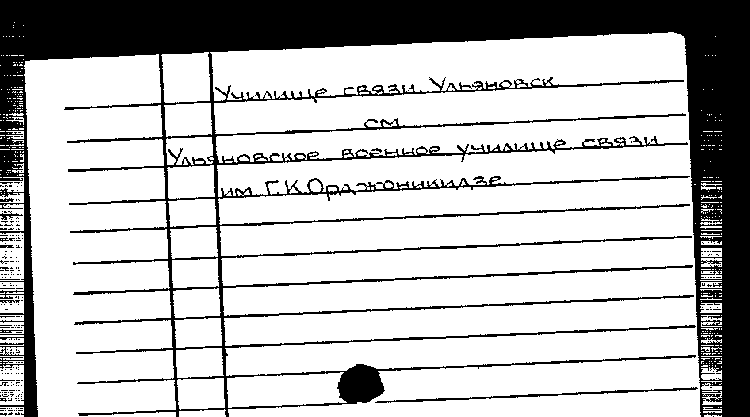 Училище связи Ульяновск
см
Ульяновское военное училище связи
им Г.К.Орджоникидзе